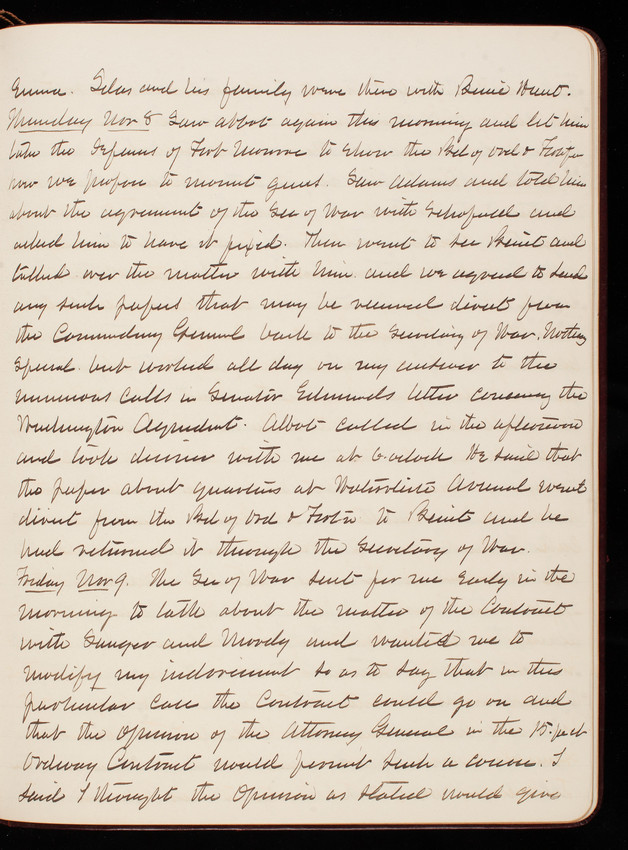 Emma. Silas and his family were there with Benie Hunt.
Thursday Nov 8 Saw Abbot again this morning and let him
take the Defenses of Fort Monroe to show the Bd of Ord & Fortfn
how we propose to mount guns. Saw Adams and told him
about the agreement of the Sec of War with Schofield and
asked him to have it fixed. Then went to see Benet and
talked over the matter with him and we agreed to send
any such papers that may be received direct from
the Commanding General back to the Secretary of War. Nothing
special but worked all day on my answer to the
numerous calls in Senator Edmunds letter concerning the
Washington Aqueduct. Abbot called in the afternoon
and took dinner with me at 6 oclock He said that
the paper about quarters at Watervliet Arsenal went
direct from the Bd of Ord & Fortn to Benet and he
had returned it through the Secretary of War.
Friday Nov 9. The Sec of War sent for me early in the
morning to talk about the matter of the Contract
with Sanger and Moody and wanted me to
modify my indorsement so as to say that in this
particular case the Contract could go on and
that the opinion of the Attorney General in the
Ordway Contract would permit such a course. I
said I thought the Opinion as stated would give